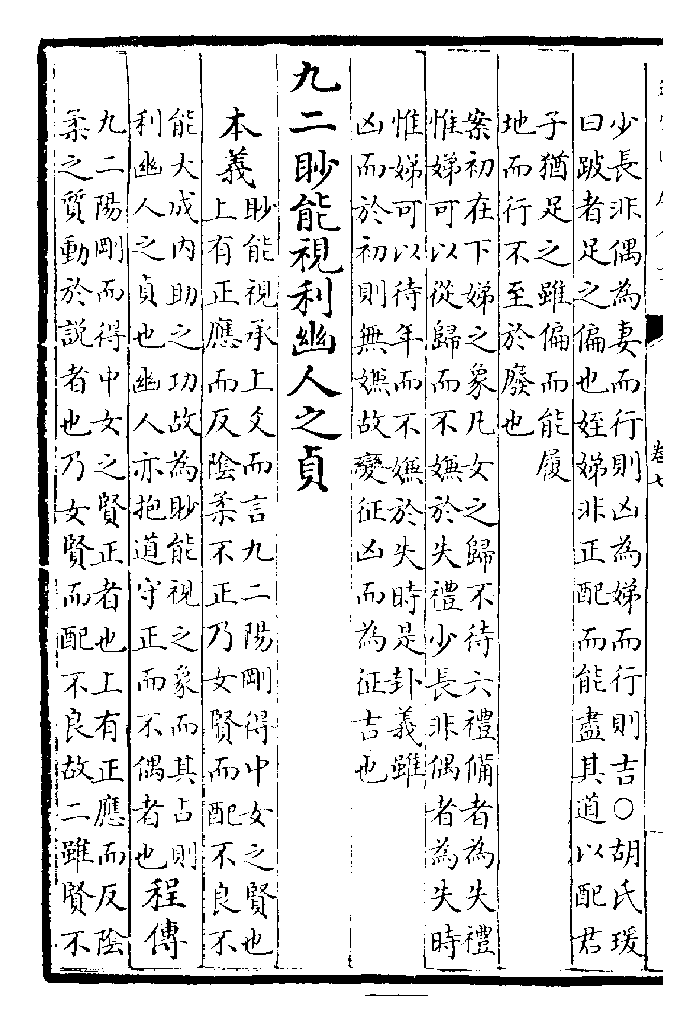 少長非偶為妻而行則凶為娣而行則吉○胡氏瑗
曰跛者足之偏也姪娣非正配而能盡其道以配君
子猶足之雖偏而能履
地而行不至於廢也
案初在下娣之象凡女之歸不待六禮備者為失禮
惟娣可以從歸而不嫌於失禮少長非偶者為失時
惟娣可以待年而不嫌於失時是卦義雖
凶而於初則無嫌故變征凶而為征吉也
九二眇能視利幽人之貞
本義
眇能視承上爻而言九二陽剛得中女之賢也
上有正應而反陰柔不正乃女賢而配不良不
能大成內助之功故為眇能視之象而其占則
利幽人之貞也幽人亦抱道守正而不偶者也
程傳
九二陽剛而得中女之賢正者也上有正應而反陰
柔之質動於說者也乃女賢而配不良故二雖賢不
卷七